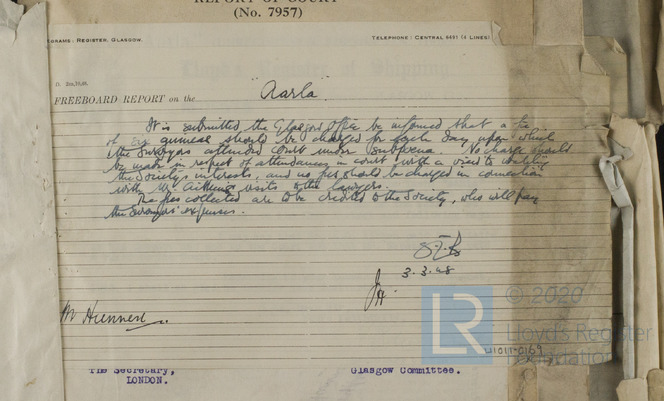 REPORT OF COURT
(No. 7957)
GRAMS: REGISTER, GLASGOW.
TELEPHONE: CENTRAL 6491 (4 LINES)
FREEBOARD REPORT on the "Aarla"
It is submitted the Glasgow Office be informed that a fee
of six guineas should be charged for each day upon which
the Surveyors attended Court under subpoena. No charge should
be made in respect of attendances in court with a view to watching
the Society's interests, and no fee should be charged in connection
with Mr visits to the lawyers.
The fees collected are to be credited to the Society, who will pay
the Surveyors' expenses.
3.3.48
Mr
The Secretary,
LONDON.
Glasgow Committee.
LR
© 2020
Lloyd's Register
Foundation